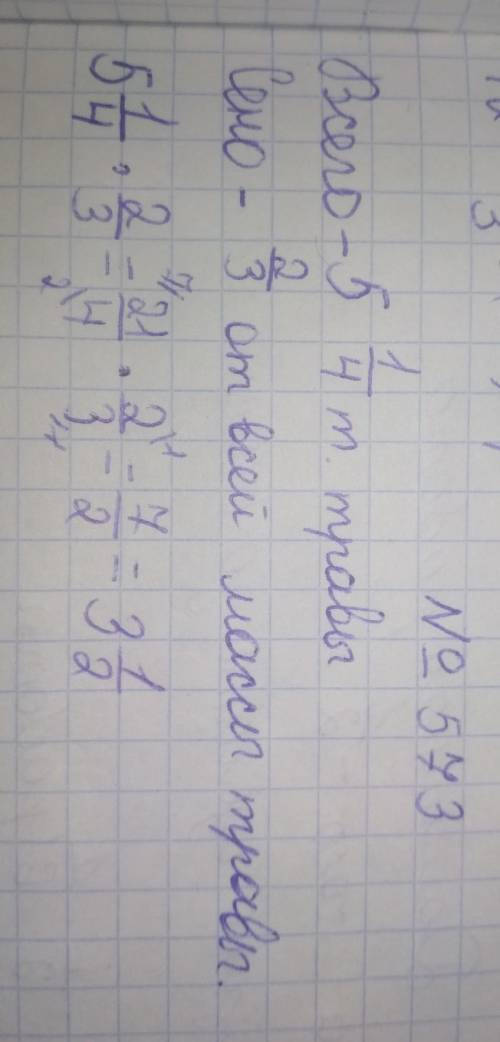 № 573
Всего - 5 1/4 т. травы
Сено - 2/3 от всей массы травы.
5 1/4 · 2/3 = 21/4 · 2/3 = 7/2 = 3 1/2